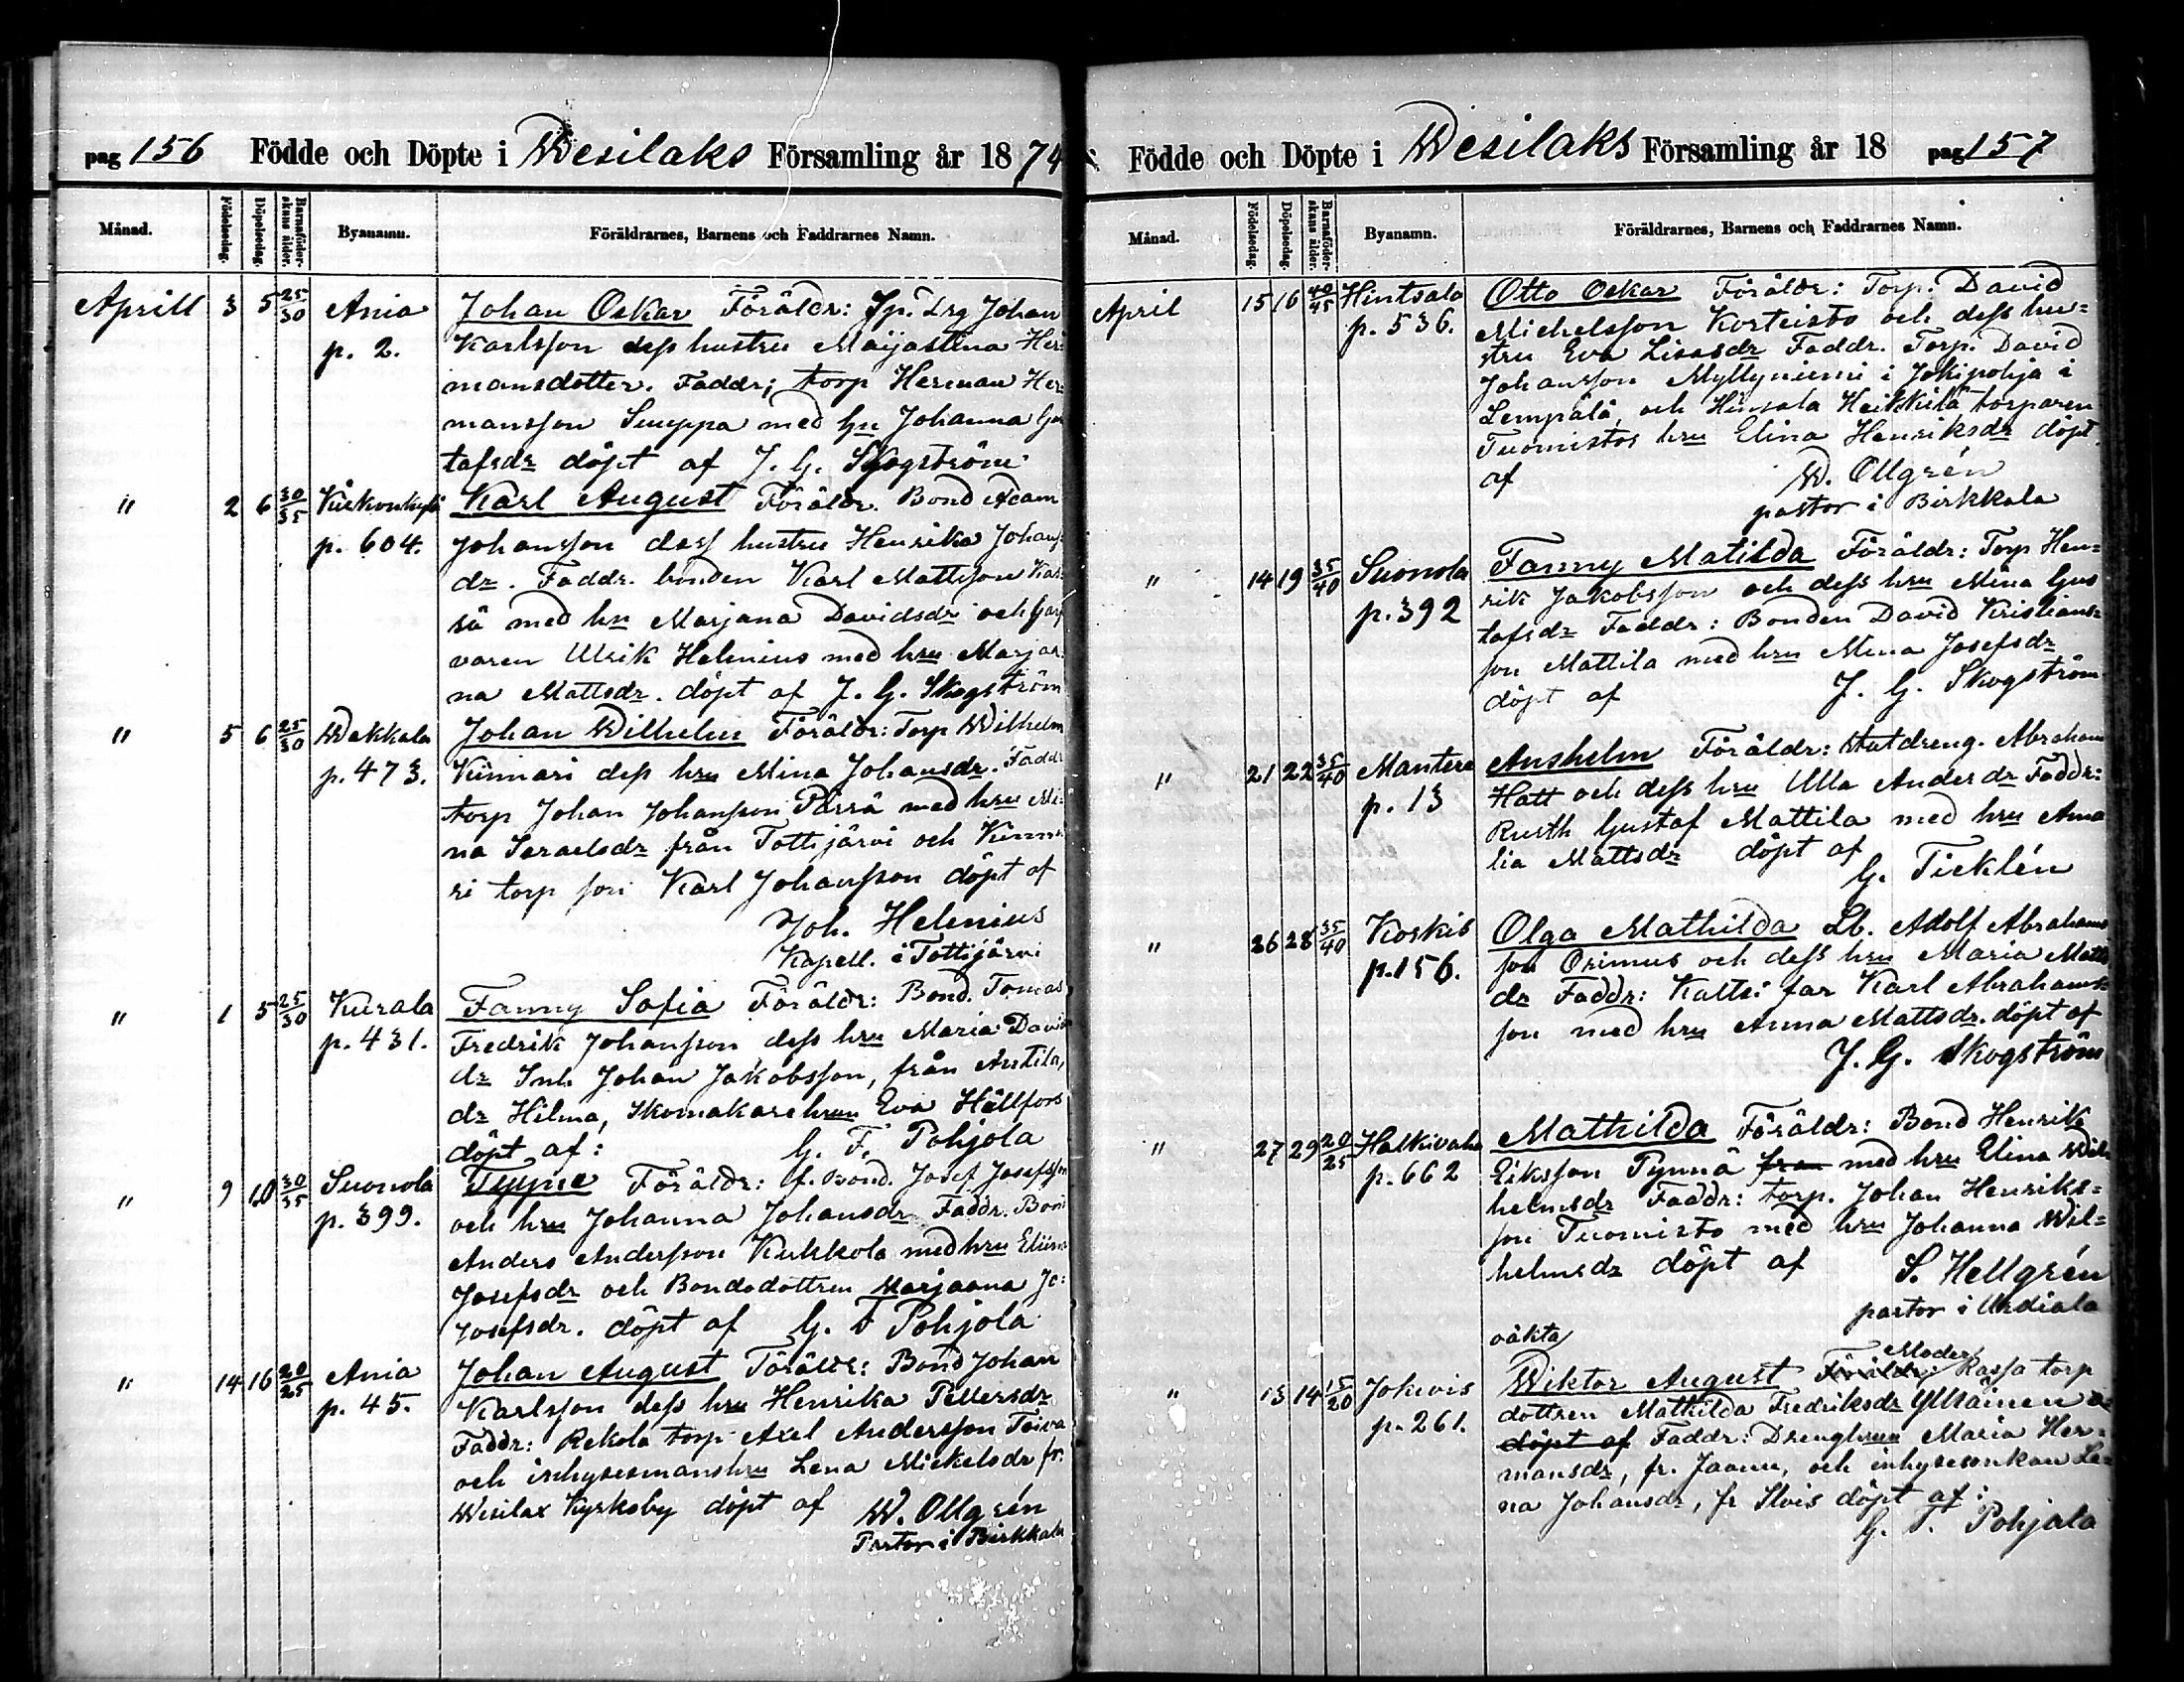 pag 156 Födde och Döpte i Wesilaks Församling år 1874
Månad. Födelsedag. Döpelsedag. Barnaföderskans ålder. Byanamn. Föräldrarnes, Barnens och Faddrarnes Namn.
Aprill 3 5 25/30 Ania Johan Oskar Föräldr: Johan
p. 2. Karlsson dess hustru Maijastina Her=
mansdotter. Faddr; torp Herman Her=
mansson Simppa med hu Johanna Gus
tafsdr döpt af J. G. Skogström
" 2 6 30/35 Kirkonkylä Karl August Föräldr. Bond Adam
p. 604. Johansson dess hustru Henrika Johans=
dr. Faddr. bonden Karl Mattsson
sä med hu Marjana Davidsdr och Garf
varen Ulrik Helenius med hru Marjan
na Mattsdr. döpt af J. G. Skogström
" 5 6 25/30 Wakkala Johan Wilhelm Föräldr: Torp Wilhelm
p. 473. Kinnari dess hru Mina Johansdr. Faddr
torp Johan Johansson Pärrä med hru Mi=
na Israelsdr från Tottijärvi och Kinna
ri torp son Karl Johansson döpt af
Joh. Helenius
Kapell. i Tottijärvi
" 1 5 25/30 Kurala Fanny Sofia Föräldr: Bond. Tomas
p. 431. Fredrik Johansson dess hru Maria Davids
dr Inh Johan Jakobsson, från Antila,
dr Hilma, Skomakare hrun Eva Hällfors
döpt af: G. F. Pohjola
" 9 10 30/35 Suonola Tyyne Föräldr: f. Bond. Josef Josefsson
p. 399. och hru Johanna Johansdr Faddr. Bond
Anders Andersson Kukkola med hru Eliina
Josefsdr och Bondedottren Marjaana Jo=
Josefsdr. döpt af G. F Pohjola
" 14 16 20/25 Ania Johan August Föräldr: Bond Johan
p. 45. Karlsson dess hru Henrika Pettersdr
Faddr: Rekola torp Axel Andersson Toiva
och inhysesmanshru Lena Mickelsdr fr.
Wesilax Kyrkoby döpt af W. Ollgrén
Pastor i Birkkala
Födde och Döpte i Wesilaks Församling år 18 pag 157
Månad. Födelsedag. Döpelsedag. Barnaföderskans ålder. Byanamn. Föräldrarnes, Barnens och Faddrarnes Namn.
April 15 16 40/45 Hintsala Otto Oskar Föräldr: Torp. David
p. 536. Michelsson Korteisto och dess hu=
stru Eva Liisasdr Faddr. Torp. David
Johansson Myllyniemi i Jokipohja i
Lempälä, och Hinsala Heikkilä torparen
Tuomistos hru Elina Henriksdr döpt
af W. Ollgrén
pastor i Birkkala
" 14 19 35/40 Suonola Fanny Matilda Föräldr: Torp Hen=
p. 392 rik Jakobsson och dess hru Mina Gus
tafsdr Faddr: Bonden David Kristians=
son Mattila med hru Mina Josefsdr
döpt af J. G. Skogström
" 21 22 35/40 Mantere Anshelm Föräldr: Statdreng. Abraham
p. 13 Hatt och dess hru Ulla Andersdr Faddr:
Rusth Gustaf Mattila med hru Ama
lia Mattsdr döpt af
G. Ticklén
" 26 28 35/40 Koskis Olga Mathilda Lb. Adolf Abrahams
p. 156. son Orimus och dess hru Maria Matts
dr Faddr: Kaltsi far Karl Abrahams=
son med hru Anna Mattsdr. döpt af
J. G. Skogström
" 27 29 20/25 Halkivaha Mathilda Föräldr: Bond Henrik
p. 662 Eriksson Pynnä fran med hru Elina Wil
helmsdr Faddr: torp. Johan Henriks=
son Tuomisto med hru Johanna Wil=
helmsdr döpt af S. Hellgrén
pastor i Urdiala
oäkta
Moder
" 13 14 15/20 Jokiois Wiktor August Föräldr: Rassa torp
p. 261. dottren Mathilda Fredriksdr Ylläinen
döpt af Faddr: Drenghrun Maria Her=
mansdr, fr. Jaanu, och inhysesenkan Le=
na Johansdr, fr Ilvis döpt af:
G. F. Pohjala